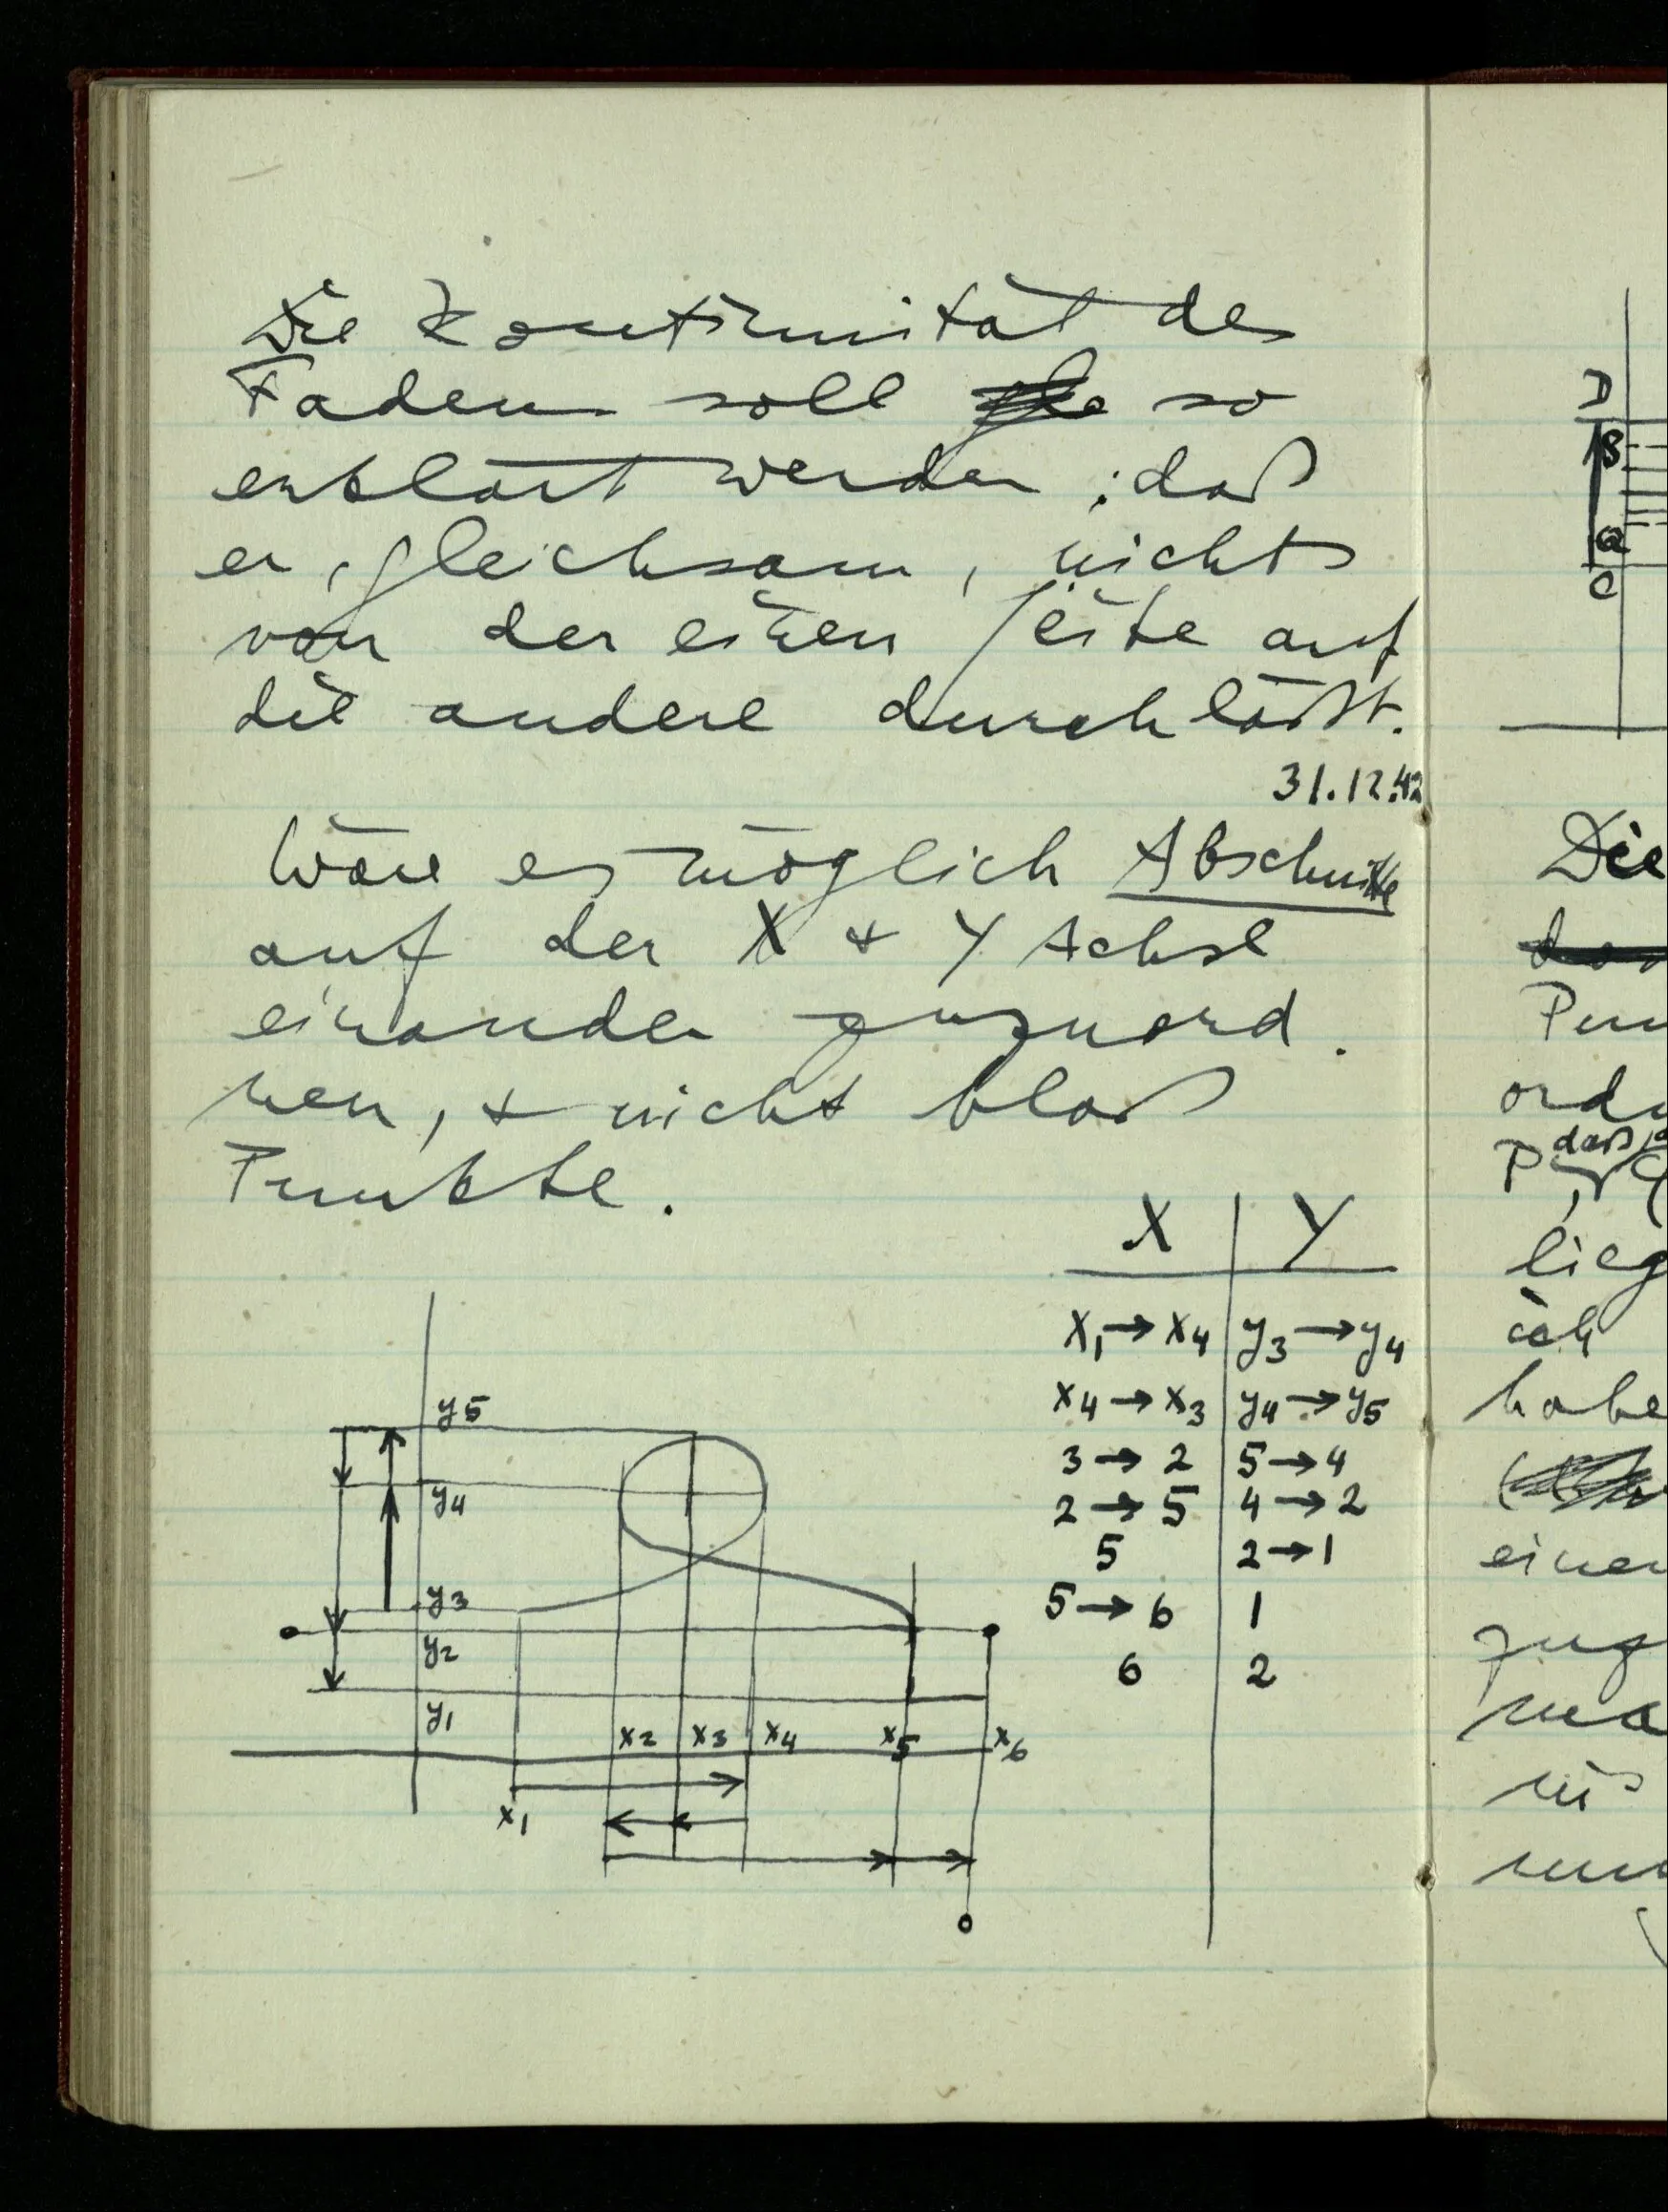 Die Kontinuität des
Fadens soll so
erklärt werden: daß
er, gleichsam, nichts
von der einen Seite auf
die andere durchläßt.
31.12.42
Wäre es möglich Abschnitte
auf der X + Y Achse
einander zuzuord.
nen, + nicht bloß
Punkte.
X | Y
x1 → x4 | y3 → y4
x4 → x3 | y4 → y5
3 → 2 | 5 → 4
2 → 5 | 4 → 2
5 | 2 → 1
5 → 6 | 1
6 | 2
y5
y4
y3
y2
y1
x2 x3 x4 x5 x6
x1
D
B
Q
C
Die
Pun
ordn
daß
P
lieg
ich
habe
einen
zug